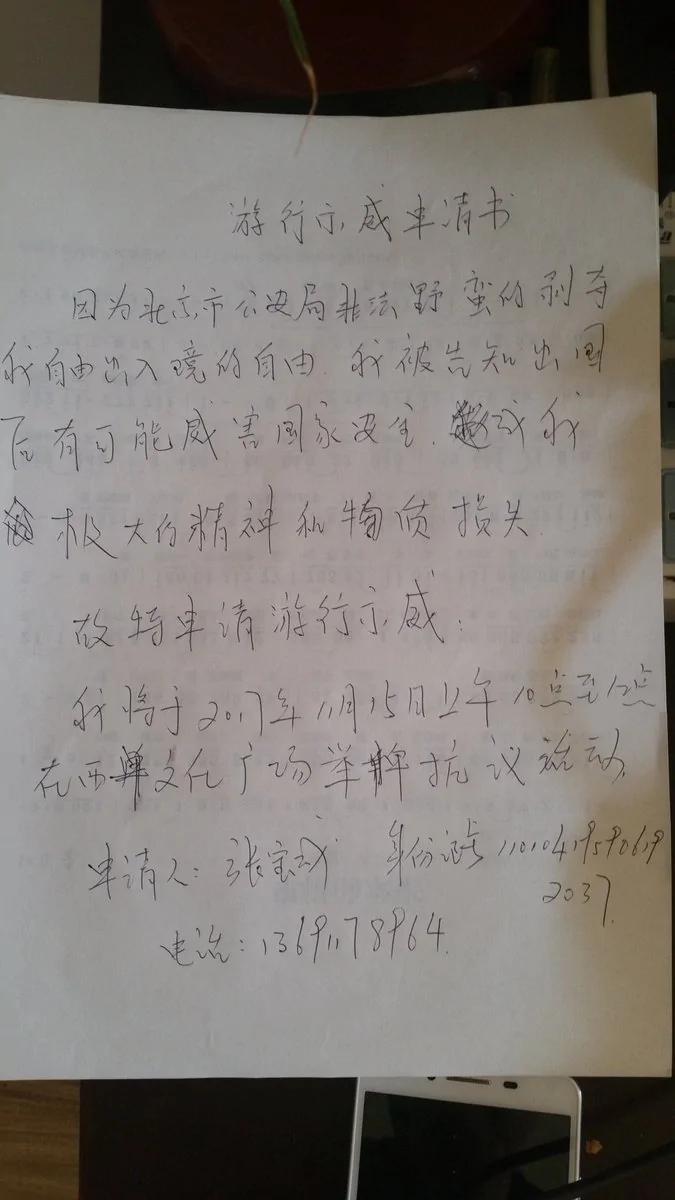 游行示威申请书
因为北京市公安局非法野蛮的剥夺
我自由出入境的自由.我被告知出国
后有可能威害国家安全.造成我
极大的精神和物质损失.
故特申请游行示威:
我将于2017年11月15日上午10点至12点
在西单文化广场举办抗议活动.
申请人:张宝成 身份证号 11010419590619
2037.
电话:13691178964.